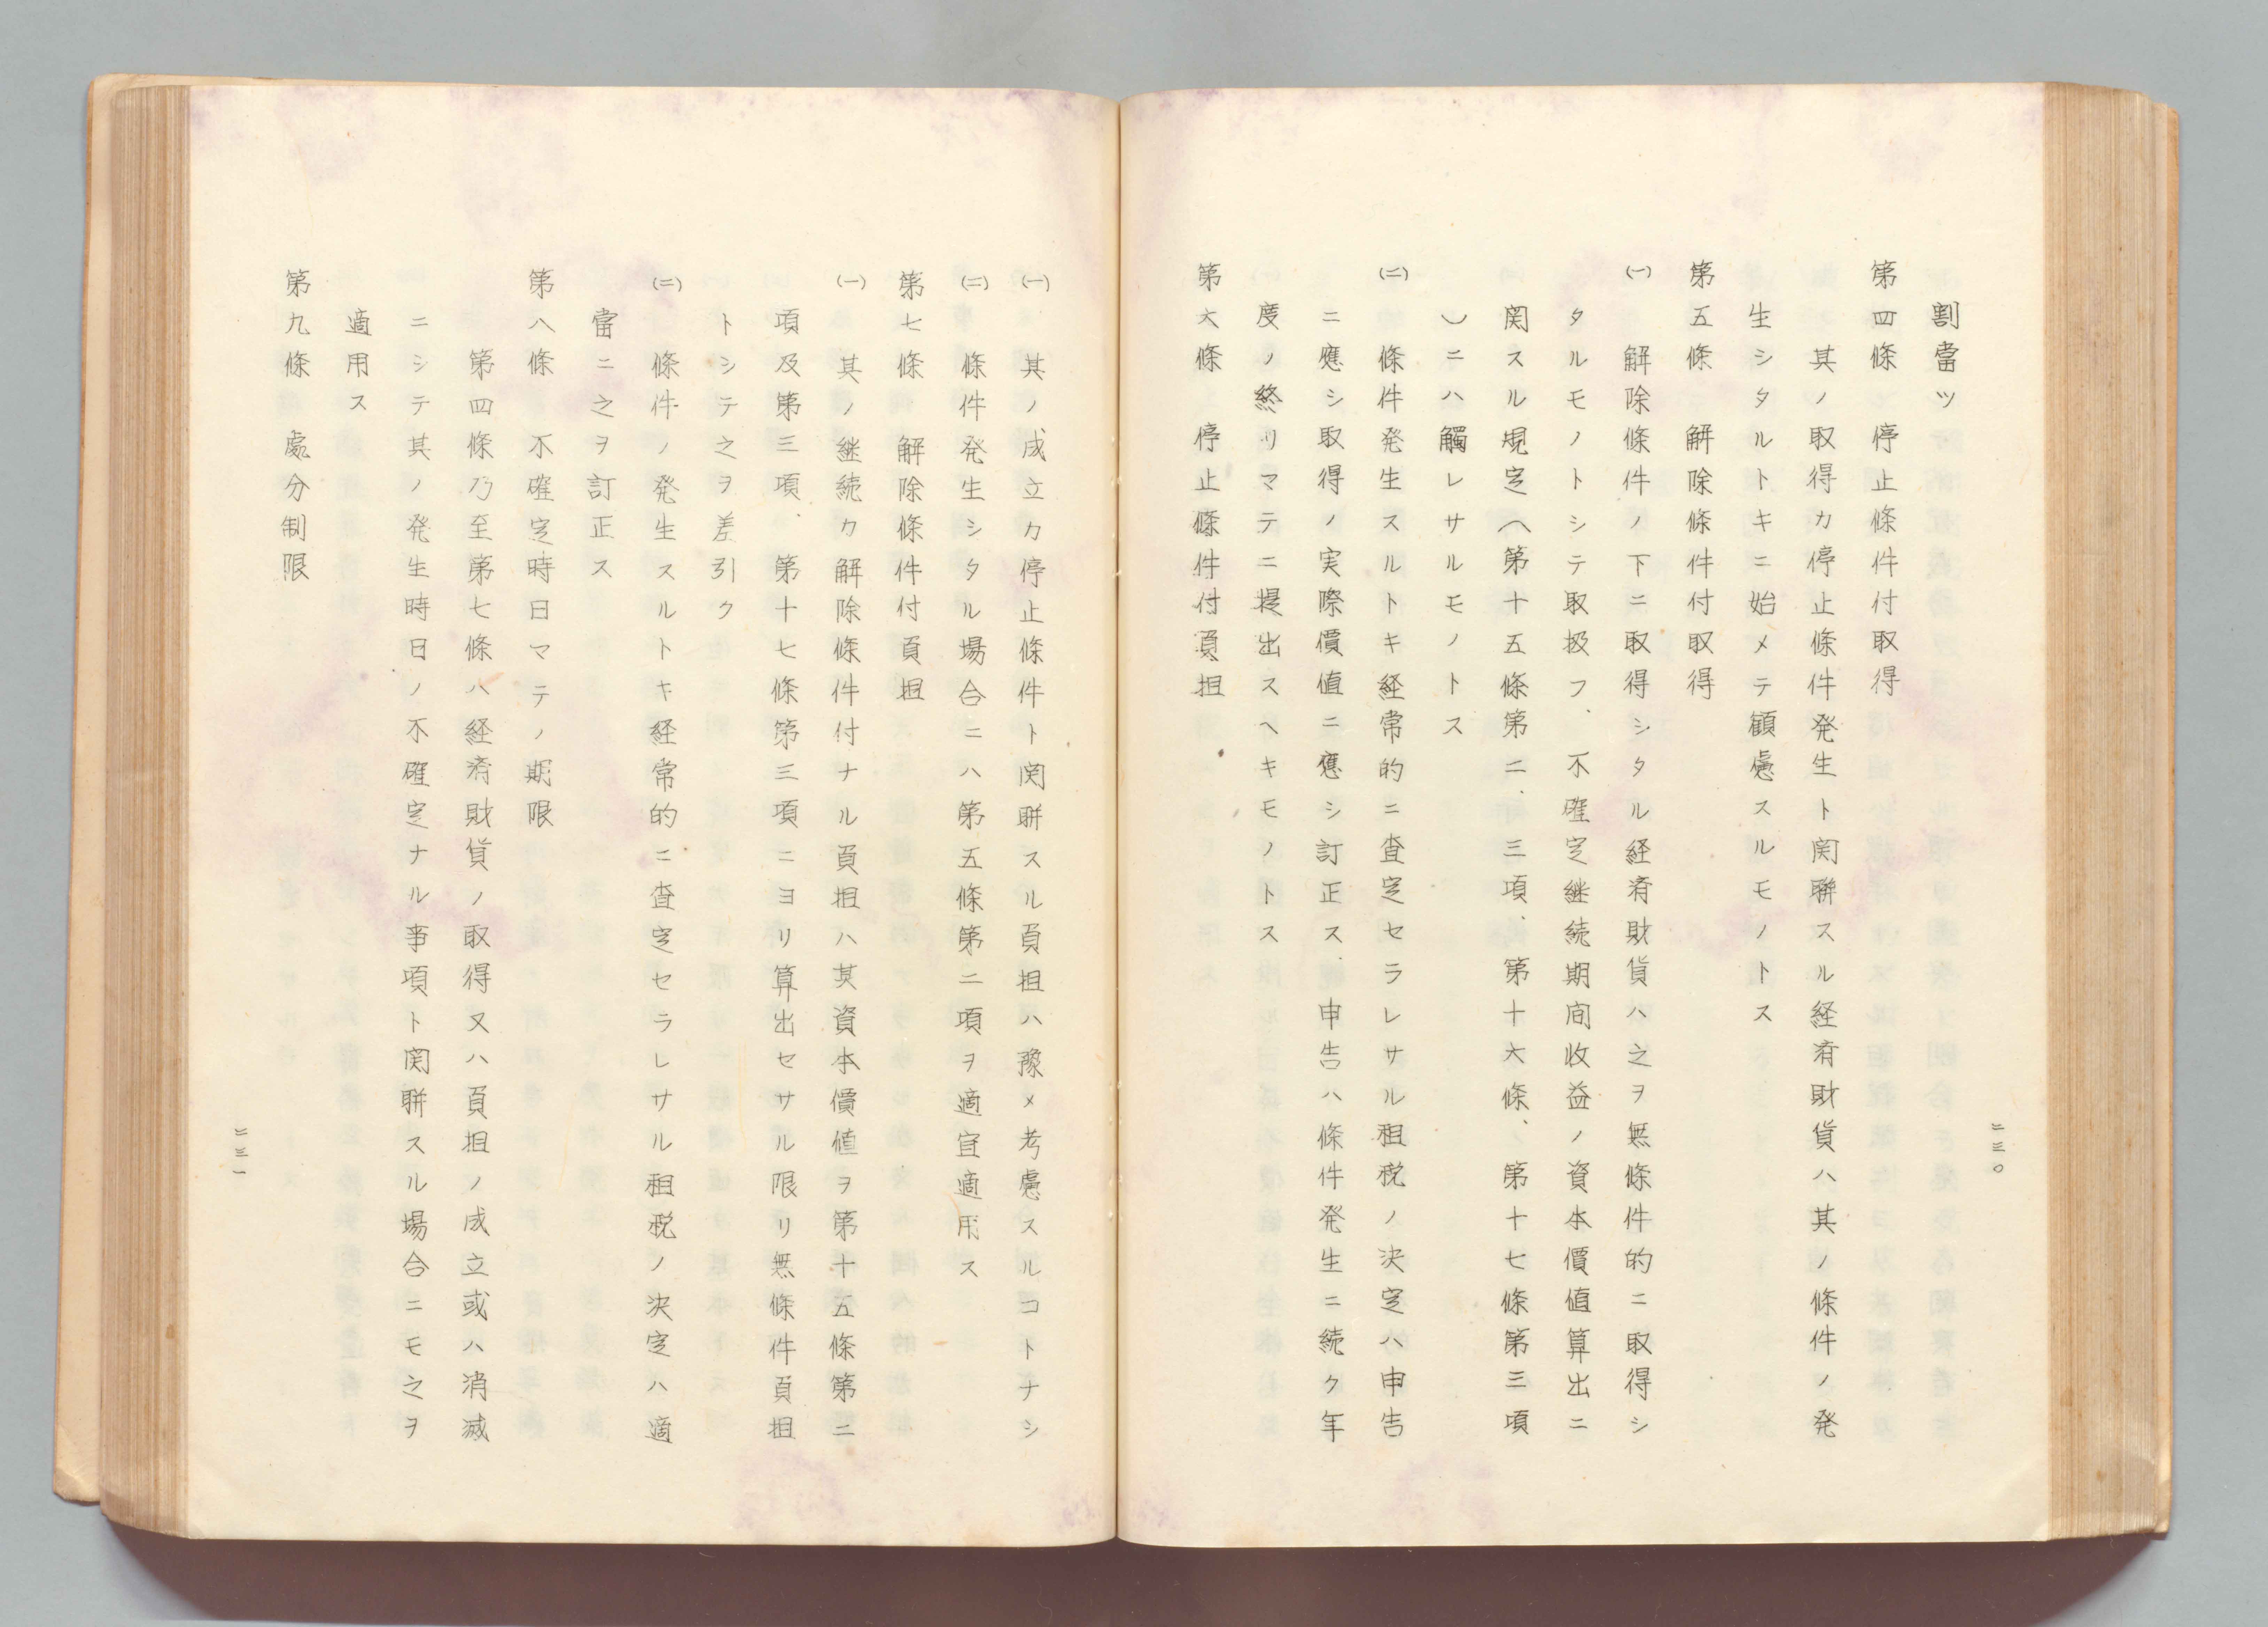 割當ツ
第四條　停止條件付取得
其ノ取得カ停止條件発生ト関聯スル経済財貨ハ其ノ條件ノ発
生シタルトキニ始メテ顧慮スルモノトス
第五條　解除條件付取得
(一)　解除條件ノ下ニ取得シタル経済財貨ハ之ヲ無條件的ニ取得シ
タルモノトシテ取扱フ、不確定継続期間收益ノ資本價値算出ニ
関スル規定（第十五條第二、三項、第十六條、第十七條第三項
）ニハ觸レサルモノトス
(二)　條件発生スルトキ経常的ニ査定セラレサル租税ノ決定ハ申告
ニ應シ取得ノ実際價値ニ應シ訂正ス、申告ハ條件発生ニ続ク年
度ノ終リマテニ提出スヘキモノトス
第六條　停止條件付負担
二三〇
(一)　其ノ成立カ停止條件ト関聯スル負担ハ豫メ考慮スルコトナシ
(二)　條件発生シタル場合ニハ第五條第二項ヲ適宜適用ス
第七條　解除條件付負担
(一)　其ノ継続カ解除條件付ナル負担ハ其資本價値ヲ第十五條第二
項及第三項、第十七條第三項ニヨリ算出セサル限リ無條件負担
トシテ之ヲ差引ク
(二)　條件ノ発生スルトキ経常的ニ査定セラレサル租税ノ決定ハ適
當ニ之ヲ訂正ス
第八條　不確定時日マテノ期限
第四條乃至第七條ハ経済財貨ノ取得又ハ負担ノ成立或ハ消滅
ニシテ其ノ発生時日ノ不確定ナル事項ト関聯スル場合ニモ之ヲ
適用ス
第九條　處分制限
二三一